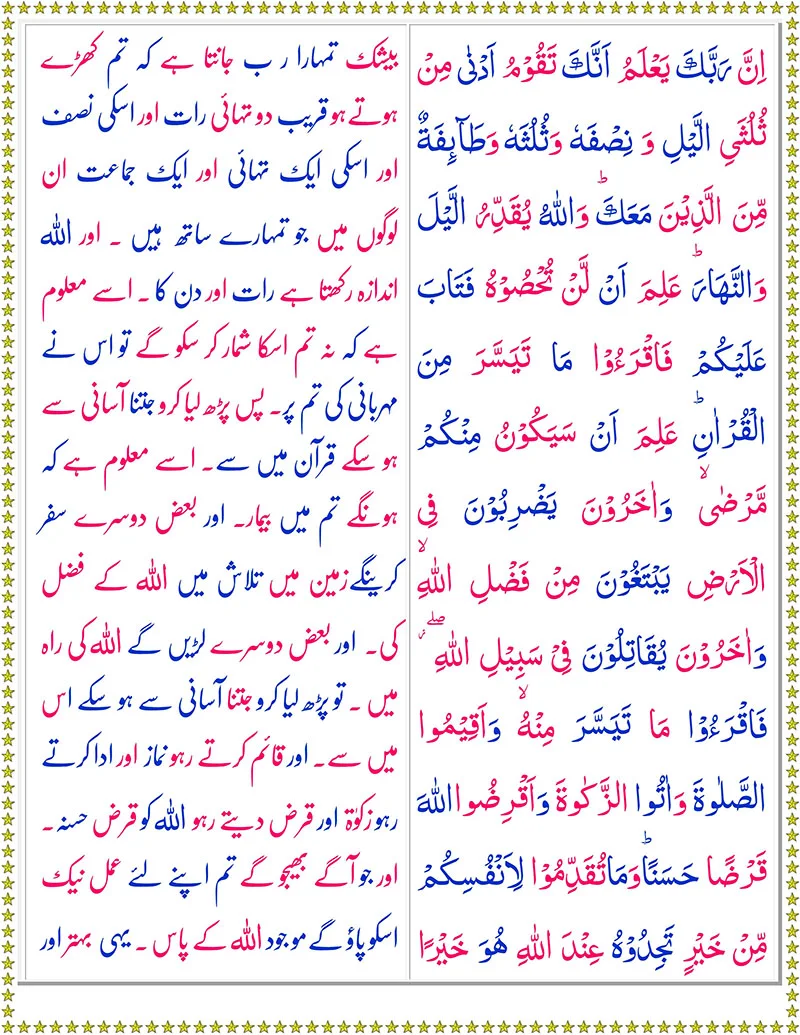 اِنَّ رَبَّكَ يَعْلَمُ اَنَّكَ تَقُوْمُ اَدْنٰى مِنْ
ثُلُثَىِ الَّيْلِ وَ نِصْفَهٗ وَثُلُثَهٗ وَطَآئِفَةٌ
مِّنَ الَّذِيْنَ مَعَكَ ؕ وَاللّٰهُ يُقَدِّرُ الَّيْلَ
وَالنَّهَارَ ؕ عَلِمَ اَنْ لَّنْ تُحْصُوْهُ فَتَابَ
عَلَيْكُمْ فَاقْرَءُوْا مَا تَيَسَّرَ مِنَ
الْقُرْاٰنِ ؕ عَلِمَ اَنْ سَيَكُوْنُ مِنْكُمْ
مَّرْضٰى ۙ وَاٰخَرُوْنَ يَضْرِبُوْنَ فِى
الْاَرْضِ يَبْتَغُوْنَ مِنْ فَضْلِ اللّٰهِ ۙ
وَاٰخَرُوْنَ يُقَاتِلُوْنَ فِىْ سَبِيْلِ اللّٰهِ ۖ
فَاقْرَءُوْا مَا تَيَسَّرَ مِنْهُ ۙ وَاَقِيْمُوا
الصَّلٰوةَ وَاٰتُوا الزَّكٰوةَ وَاَقْرِضُوا اللّٰهَ
قَرْضًا حَسَنًا ؕ وَمَا تُقَدِّمُوْا لِاَنْفُسِكُمْ
مِّنْ خَيْرٍ تَجِدُوْهُ عِنْدَ اللّٰهِ هُوَ خَيْرًا
بیشک تمہارا ر ب جانتا ہے کہ تم کھڑے
ہوتے ہو قریب دو تہائی رات اور اسکی نصف
اور اسکی ایک تہائی اور ایک جماعت ان
لوگوں میں جو تمہارے ساتھ ہیں ۔ اور اللہ
اندازہ رکھتا ہے رات اور دن کا ۔ اسے معلوم
ہے کہ نہ تم اسکا شمار کر سکو گے تو اس نے
مہربانی کی تم پر۔ پس پڑھ لیا کرو جتنا آسانی سے
ہو سکے قرآن میں سے۔ اسے معلوم ہے کہ
ہونگے تم میں بیمار۔ اور بعض دوسرے سفر
کرینگے زمین میں تلاش میں اللہ کے فضل
کی۔ اور بعض دوسرے لڑیں گے اللہ کی راہ
میں ۔ تو پڑھ لیا کرو جتنا آسانی سے ہو سکے اس
میں سے۔ اور قائم کرتے رہو نماز اور ادا کرتے
رہو زکوٰۃ اور قرض دیتے رہو اللہ کو قرض حسنہ۔
اور جو آگے بھیجو گے تم اپنے لئے عمل نیک
اسکو پاؤ گے موجود اللہ کے پاس ۔ یہی بہتر اور